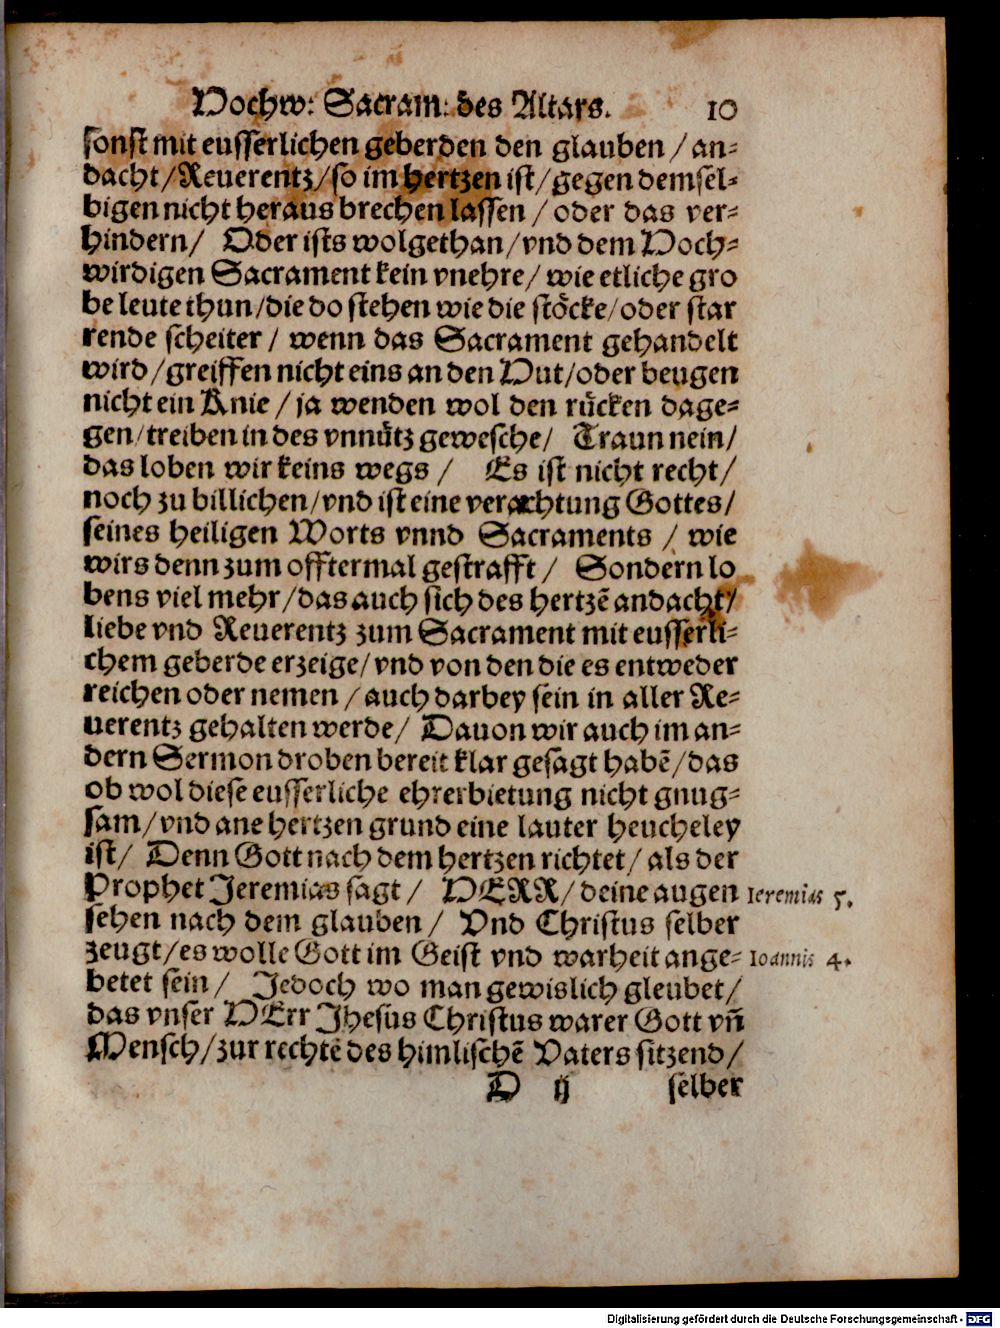 Hochw: Sacram: des Altars. 10
sonst mit eusserlichen geberden den glauben / an-
dacht / Reuerentz / so im hertzen ist / gegen demsel-
bigen nicht heraus brechen lassen / oder das ver-
hindern / Oder ists wolgethan / vnd dem Hoch-
wirdigen Sacrament kein vnehre / wie etliche gro
be leute thun / die do stehen wie die stöcke / oder star
rende scheiter / wenn das Sacrament gehandelt
wird / greiffen nicht eins an den Hut / oder beugen
nicht ein Knie / ja wenden wol den rücken dage-
gen / treiben in des vnnütz gewesche / Traun nein /
das loben wir keins wegs / Es ist nicht recht /
noch zu billichen / vnd ist eine verachtung Gottes /
seines heiligen Worts vnnd Sacraments / wie
wirs denn zum offtermal gestrafft / Sondern lo
bens viel mehr / das auch sich des hertzē andacht /
liebe vnd Reuerentz zum Sacrament mit eusserli-
chem geberde erzeige / vnd von den die es entweder
reichen oder nemen / auch darbey sein in aller Re-
uerentz gehalten werde / Dauon wir auch im an-
dern Sermon droben bereit klar gesagt habē / das
ob wol diese eusserliche ehrerbietung nicht gnug-
sam / vnd ane hertzen grund eine lauter heucheley
ist / Denn Gott nach dem hertzen richtet / als der
Prophet Jeremias sagt / HERR / deine augen Ieremias 5.
sehen nach dem glauben / Vnd Christus selber
zeugt / es wolle Gott im Geist vnd warheit ange- Ioannis 4.
betet sein / Jedoch wo man gewislich gleubet /
das vnser HErr Jhesus Christus warer Gott vñ
Mensch / zur rechtē des himlischē Vaters sitzend /
D ij selber
Digitalisierung gefördert durch die Deutsche Forschungsgemeinschaft - DFG